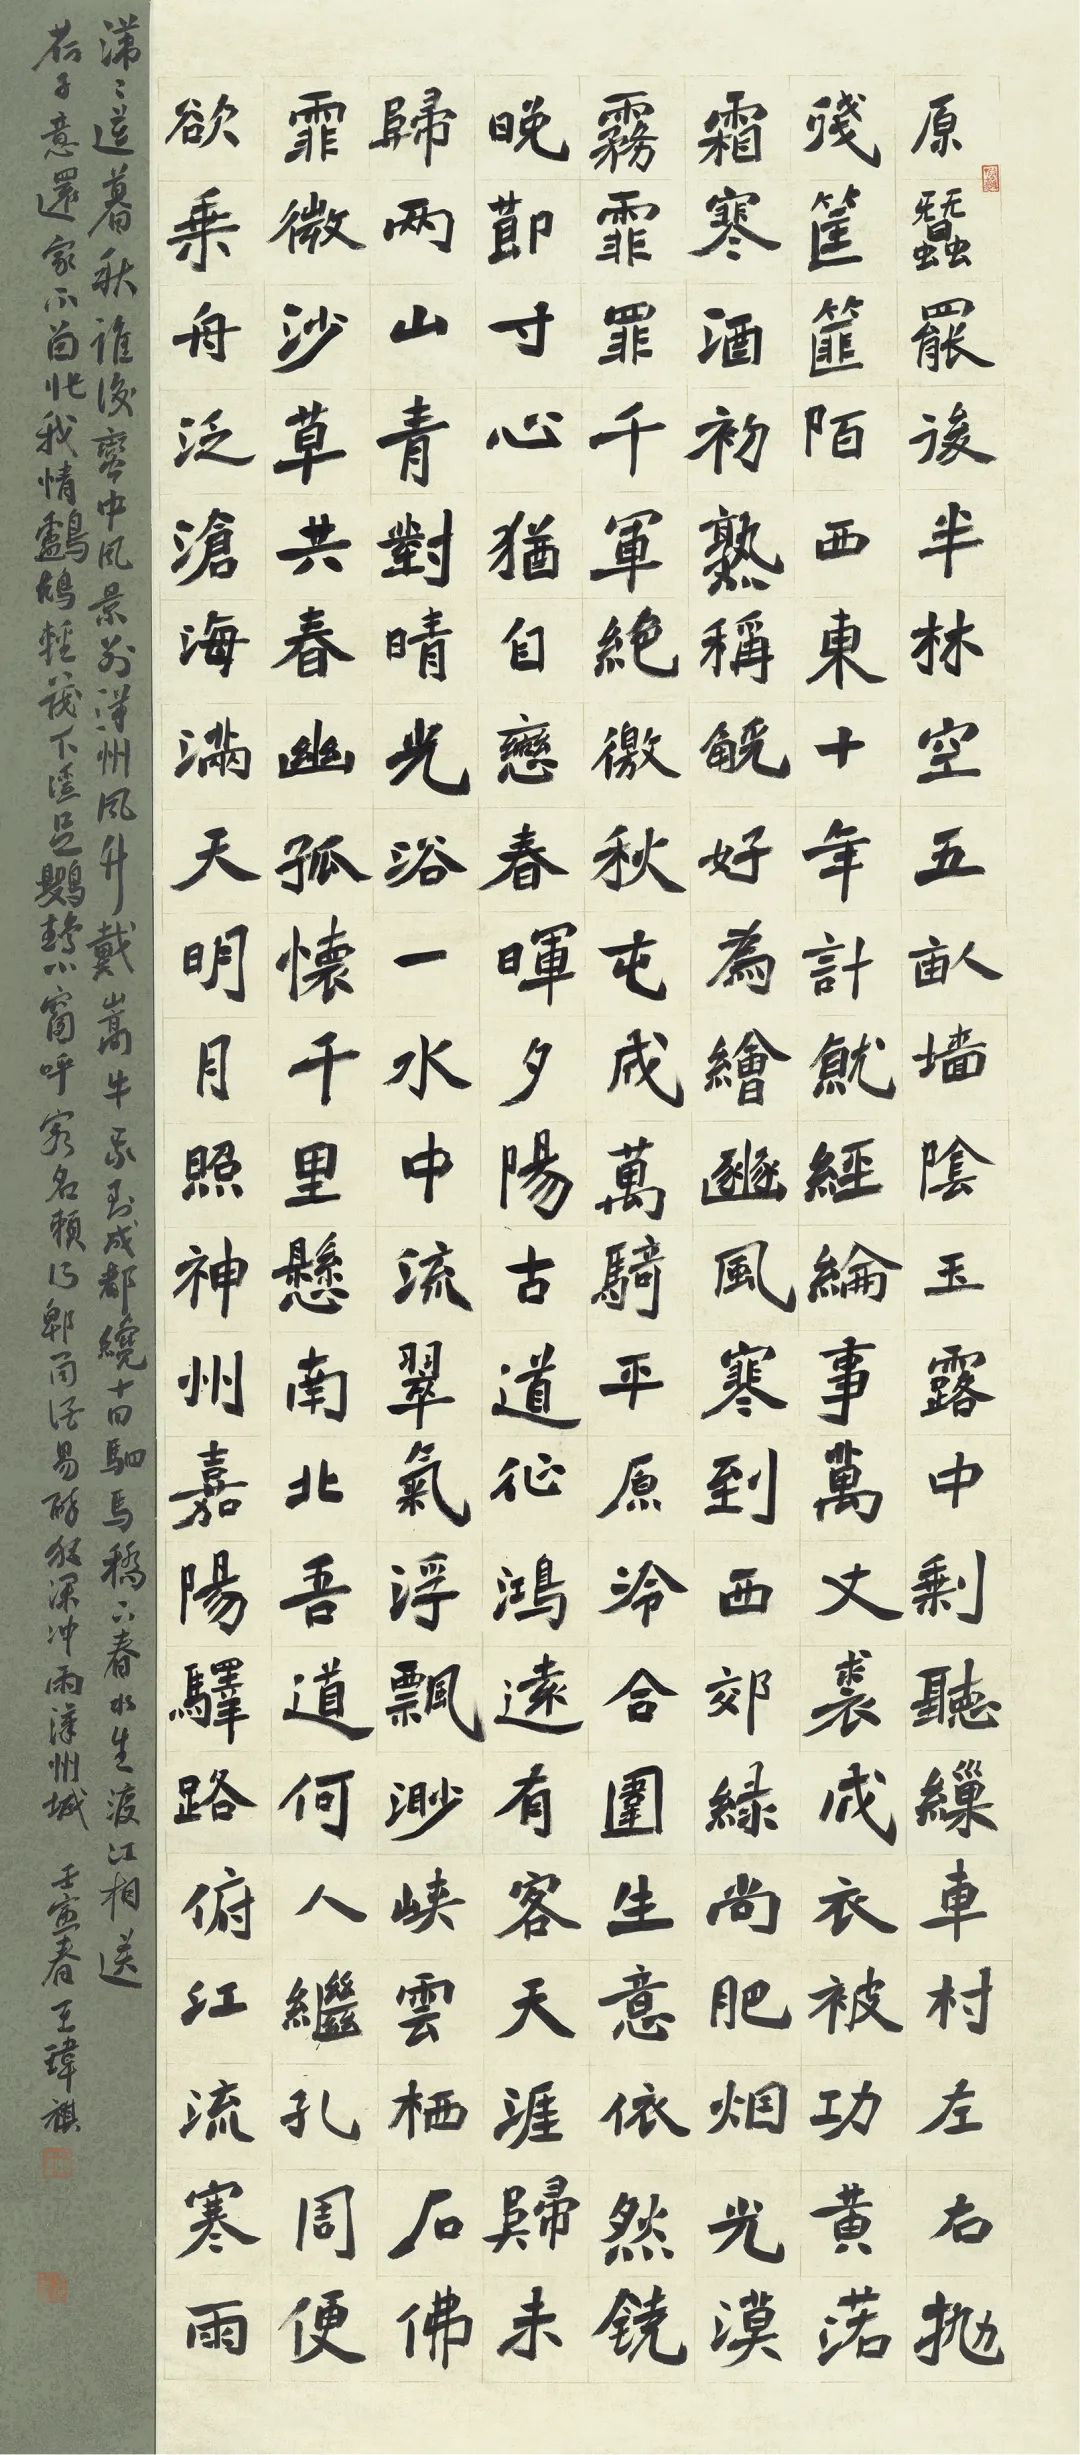 原蠶罷後半林空五畝墙陰玉露中剩聽繅車村左右拋
殘筐篚陌西東十年計就經綸事萬丈裘成衣被功黃諾
霜寒酒初熟稱觥好為繪豳風寒到西郊綠尚肥烟光漠
霧霏罪千軍絕徼秋屯成萬騎平原冷合圍生意依然饒
晚節寸心猶自戀春暉夕陽古道征鴻遠有客天涯歸未
歸兩山青對晴光浴一水中流翠氣浮飄渺峽雲栖石佛
霏微沙草共春幽孤懷千里懸南北吾道何人繼孔周便
欲乘舟泛滄海滿天明月照神州嘉陽驛路俯江流寒雨
中風景別漢州風升戴嵩牛 到成都纔十日駟馬橋下春水生渡江相送
荷子意還家不 我情鸕鶿輕 下 呼客名賴 郫筒酒易醉夜深冲雨漢州城 壬寅春王瑋祺